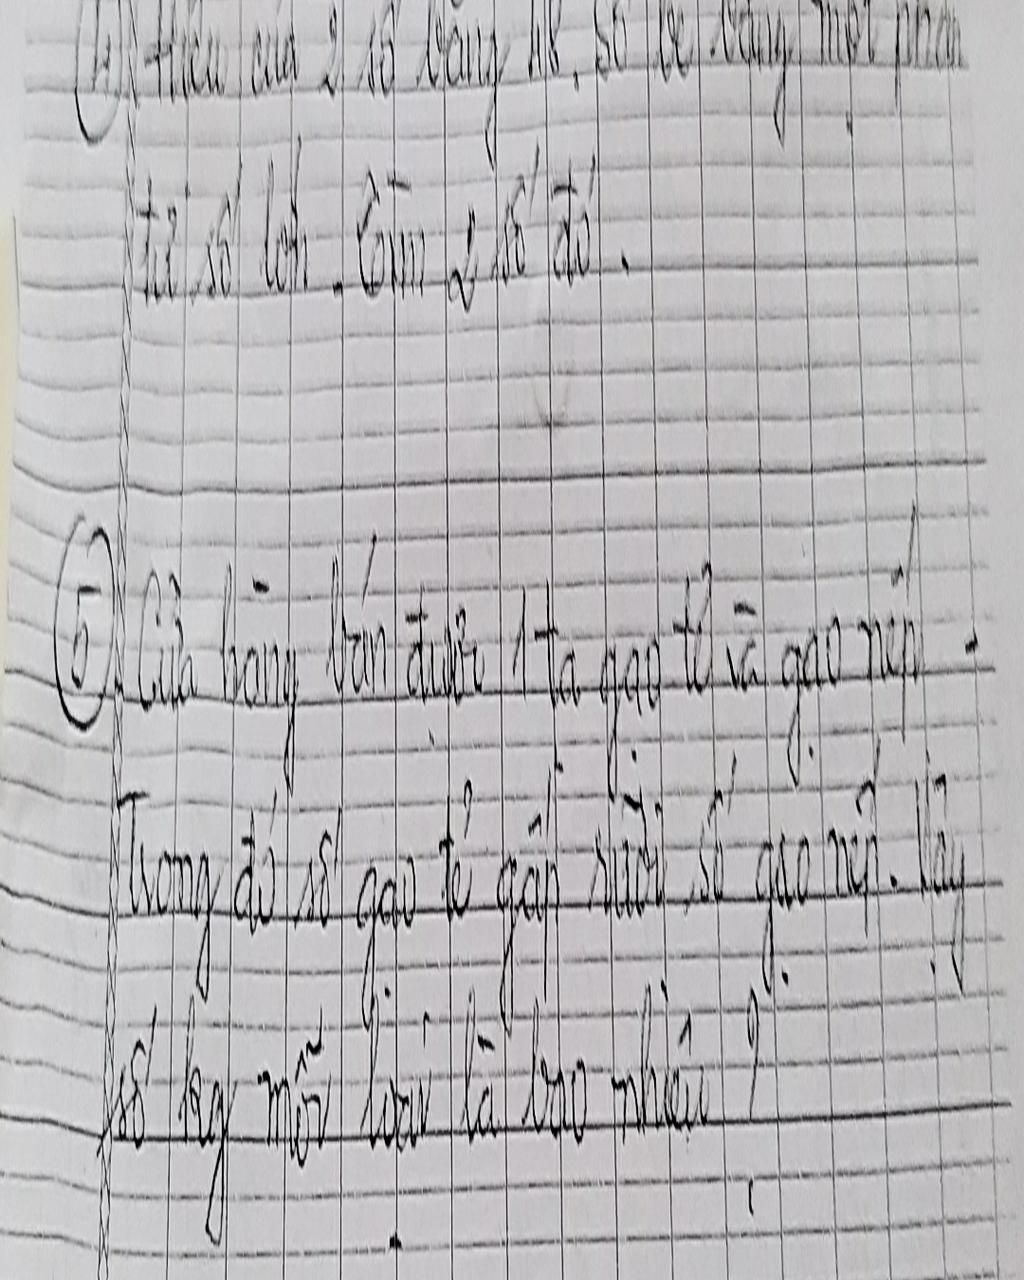 4 Hiệu của 2 số bằng 48, số bé bằng một phần
tư số lớn. Tìm 2 số đó.
5 Cửa hàng bán được 1 tạ gạo tẻ và gạo nếp.
Trong đó số gạo tẻ gấp rưỡi số gạo nếp. Vậy
số kg mỗi loại là bao nhiêu?